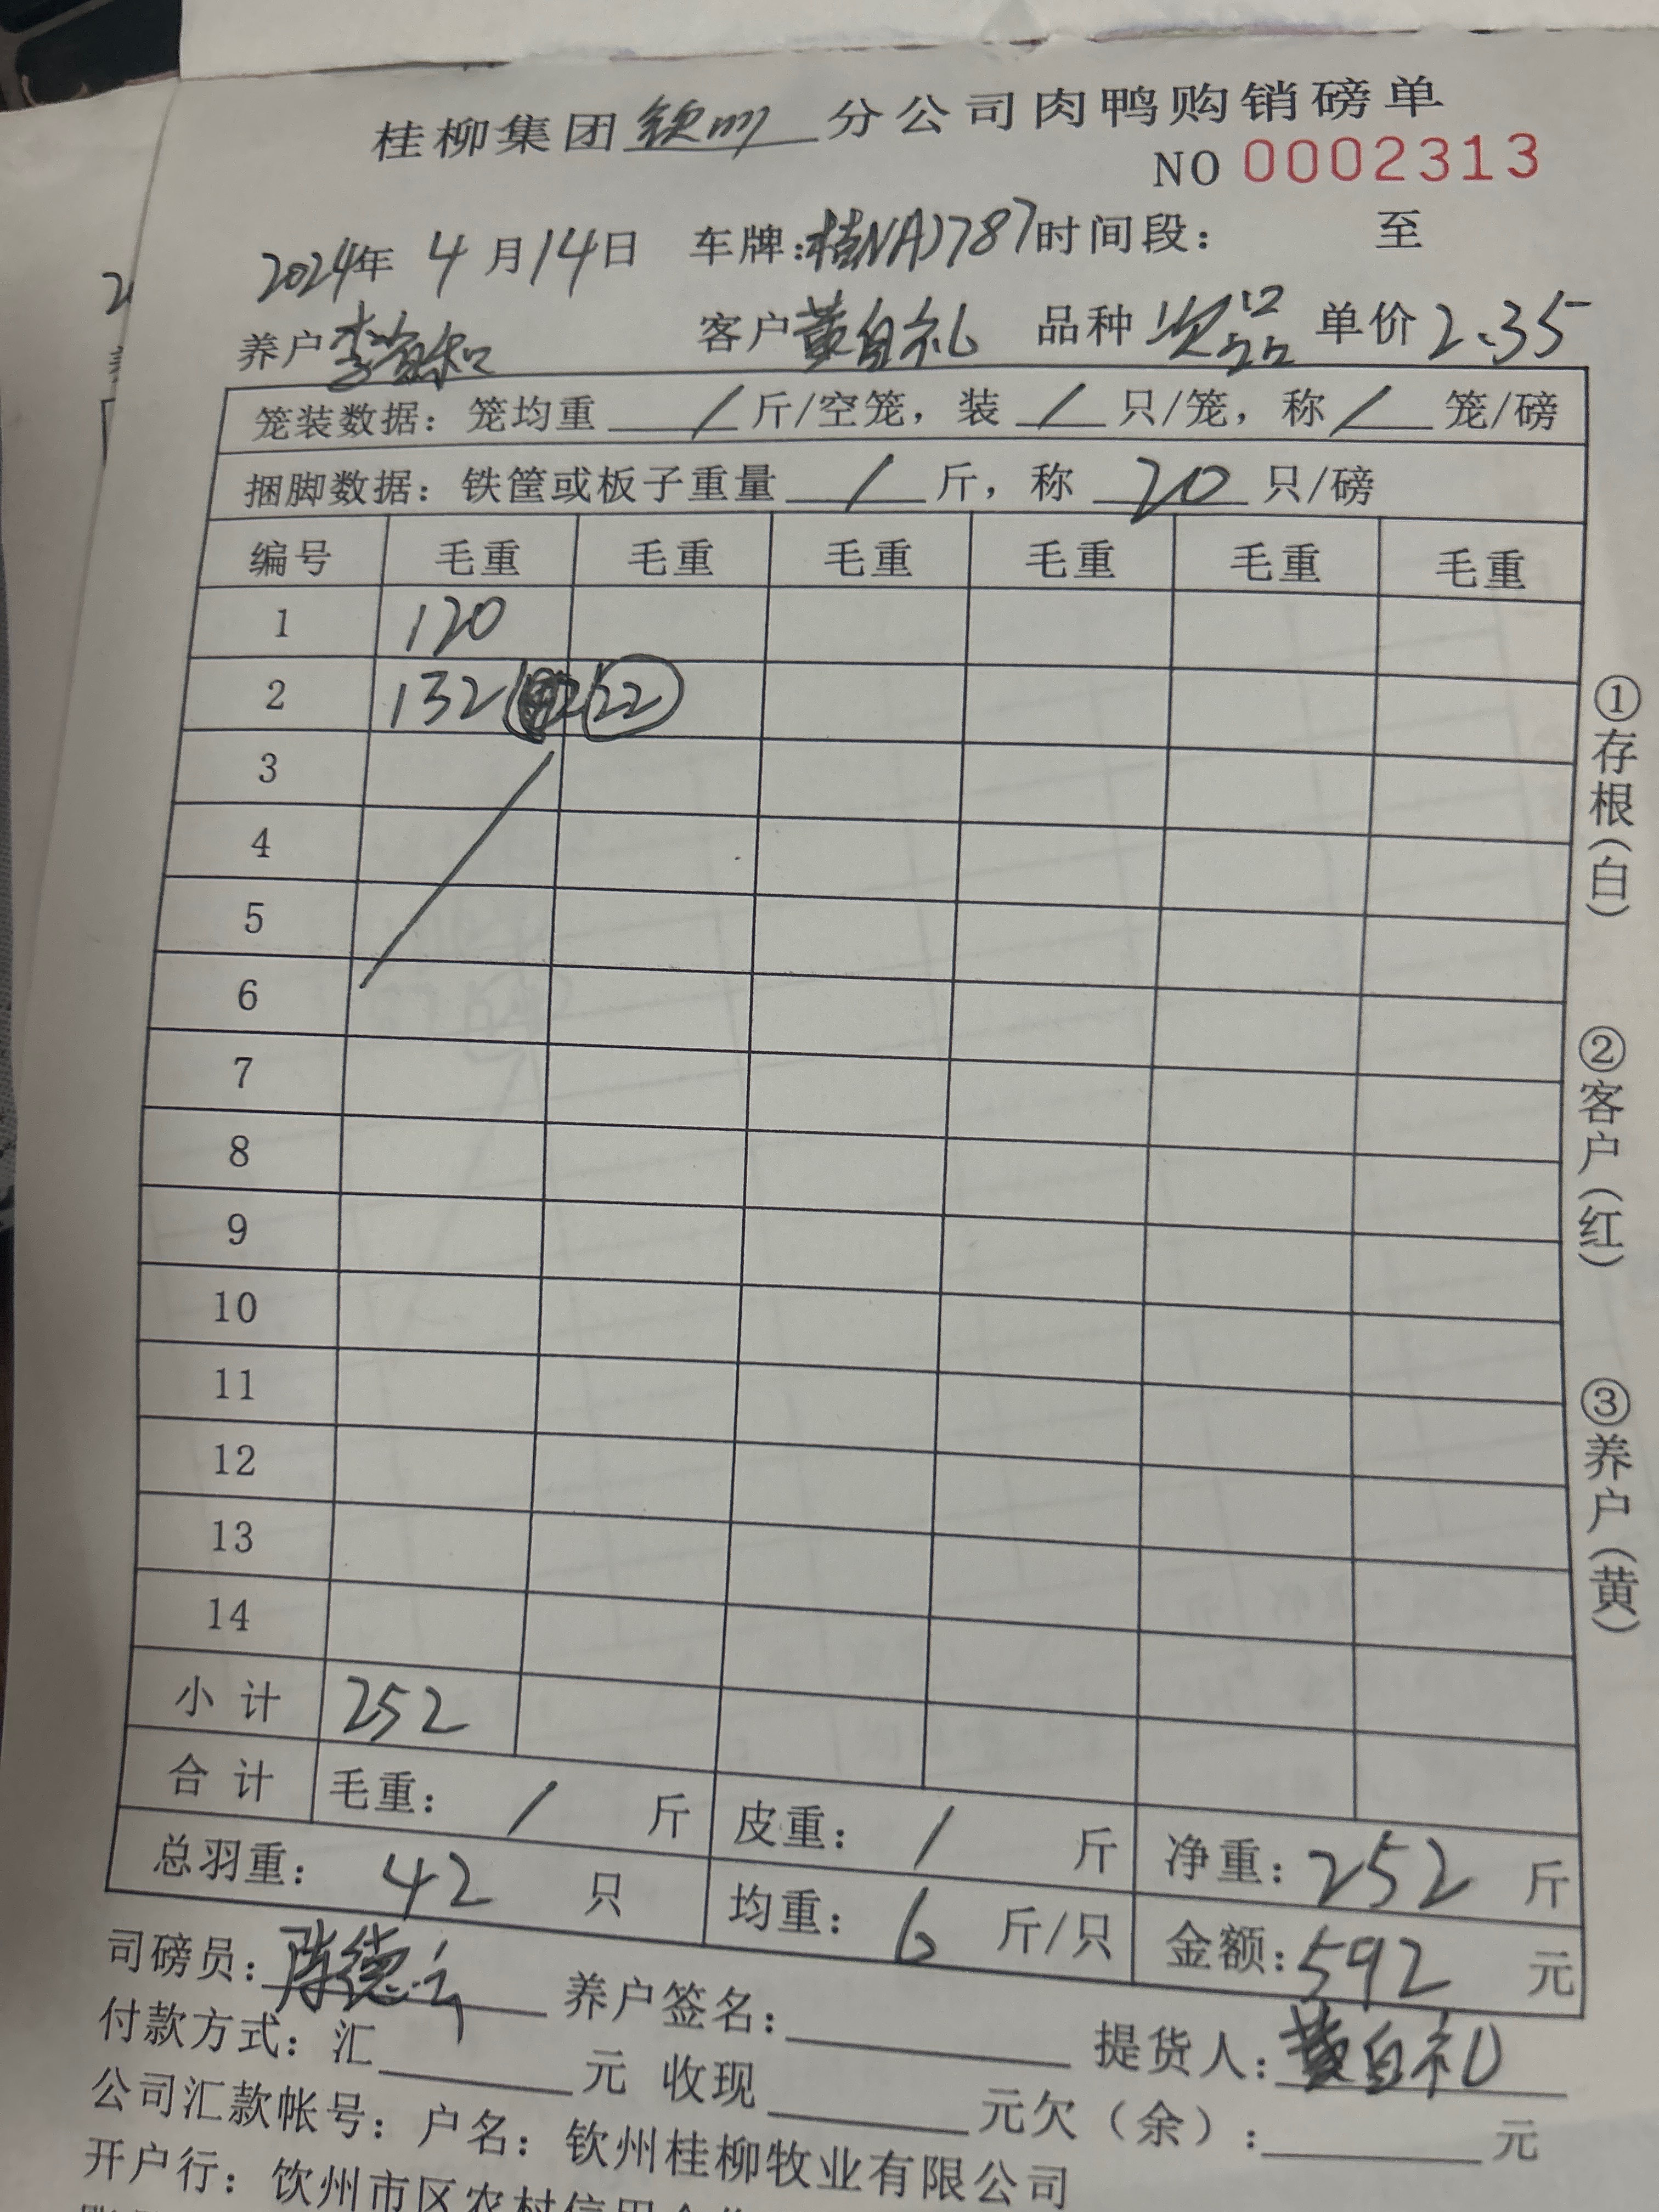 桂柳集团钦州分公司肉鸭购销磅单
NO 0002313
2024年 4月14日 车牌:桂NAD787 时间段: 至
养户 李 客户 黄自礼 品种 次品 单价 2.35
笼装数据: 笼均重 / 斤/空笼, 装 / 只/笼, 称 / 笼/磅
捆脚数据: 铁筐或板子重量 / 斤, 称 20 只/磅
编号 毛重 毛重 毛重 毛重 毛重 毛重
1 120
2 132 22
3
4
5
6
7
8
9
10
11
12
13
14
小计 252
合计 毛重: / 斤 皮重: / 斤 净重: 252 斤
总羽重: 42 只 均重: 6 斤/只 金额: 592 元
司磅员: 陈德云 养户签名: 提货人: 黄自礼
付款方式: 汇 元 收现 元欠(余): 元
公司汇款帐号: 户名: 钦州桂柳牧业有限公司
开户行: 钦州市区农村信用合作
①存根(白) ②客户(红) ③养户(黄)